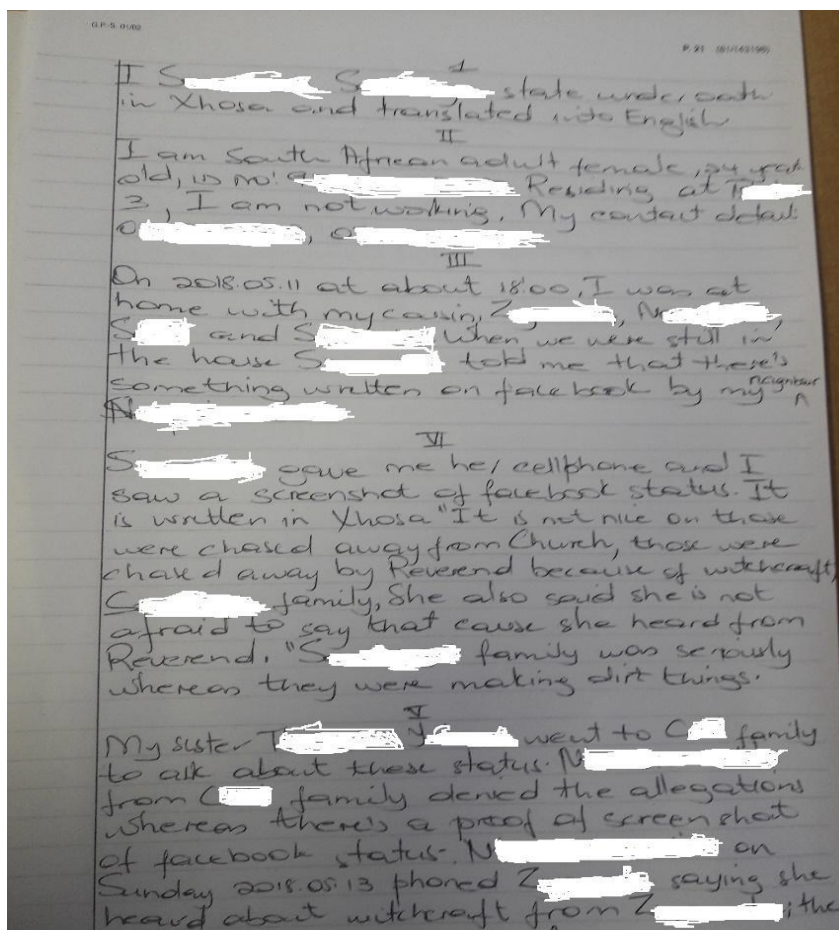 G.P.-S. 01/02
P. 21 (81/163198)
1
I S S state under oath
in Xhosa and translated into English
II
I am South African adult female, 24 years
old, Residing at
3, I am not working, My contact detail
III
On 2018.05.11 at about 18:00, I was at
home with my cousin, Z, N,
S and S When we were still in
the house S told me that there's
something written on facebook by my neighbour
N
VI
S gave me her cellphone and I
saw a screenshot of facebook status. It
is written in Xhosa "It is not nice on those
were chased away from Church, those were
chased away by Reverend because of witchcraft,
C family, She also said she is not
afraid to say that cause she heard from
Reverend. "S family was seriously
whereas they were making dirt things.
V
My sister T Y went to C family
to ask about these status. N
from C family denied the allegations
whereas there's a proof of screenshot
of facebook status. N on
Sunday 2018.05.13 phoned Z saying she
heard about witchcraft from Z; the